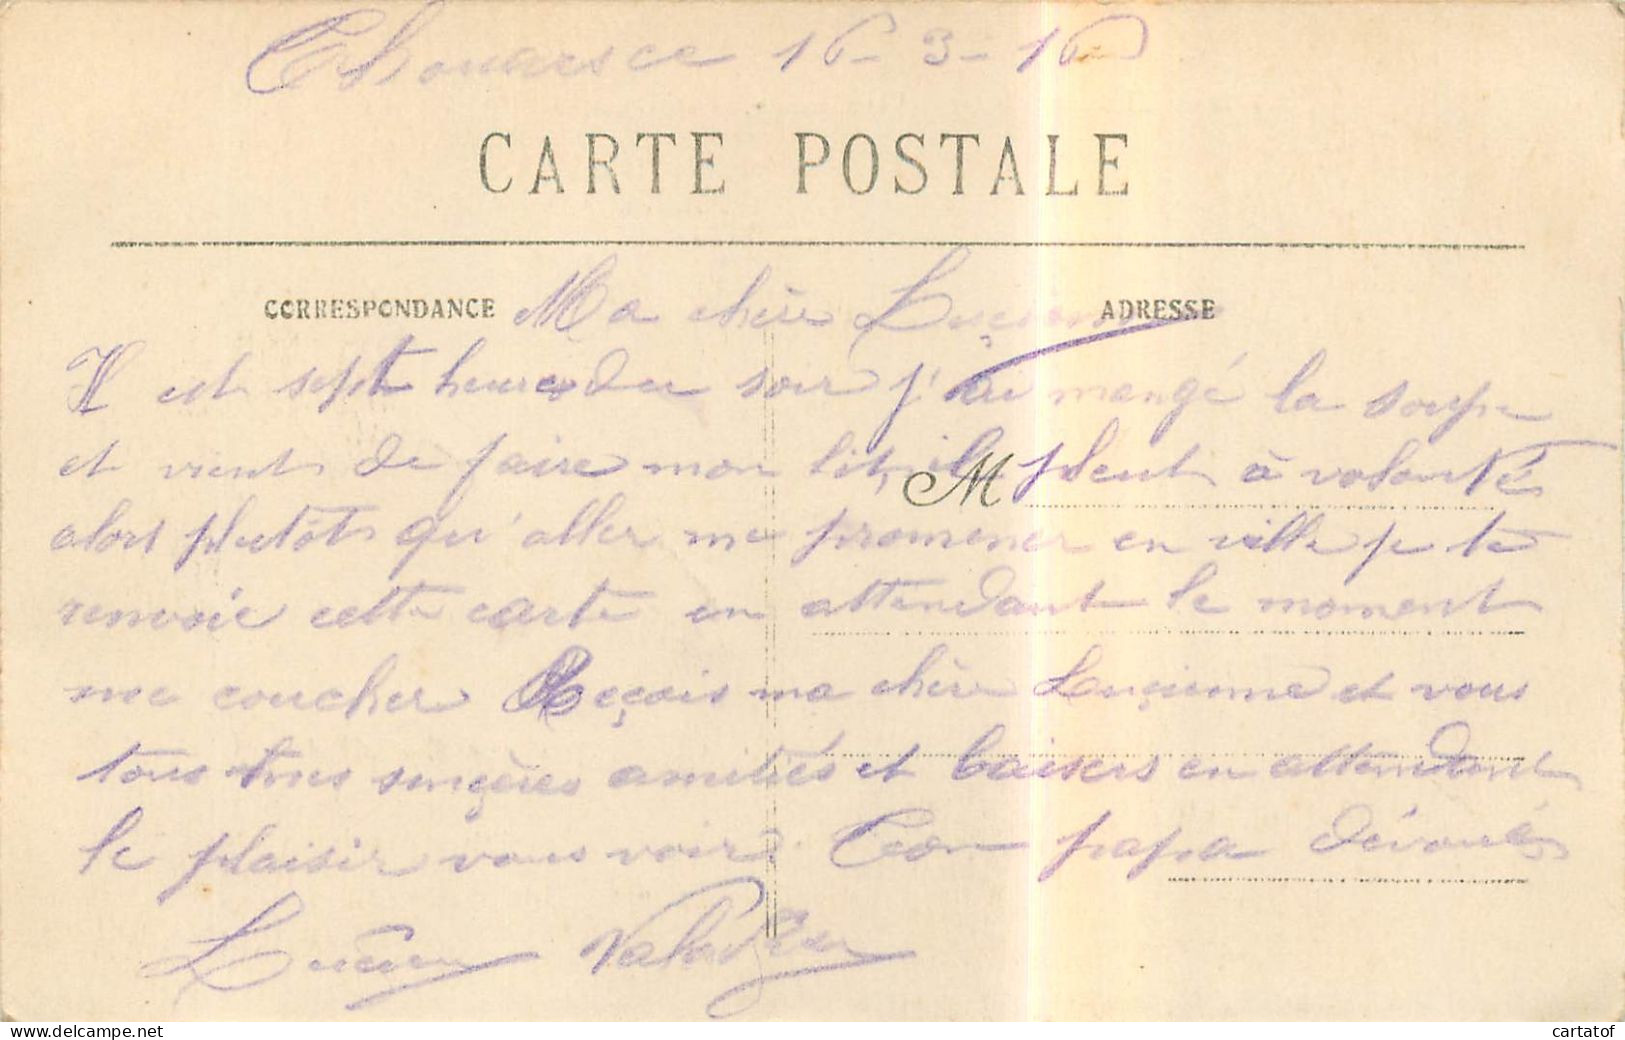 Thouarsce 16-3-16
CARTE POSTALE
CORRESPONDANCE Ma chère Luçienne ADRESSE
Il est sept heures du soir j'ai mangé la soupe
et vient de faire mon lit, il pleut à volonté
M
alors plutôt qu'aller me promener en ville je te
renvoie cette carte en attendant le moment
me coucher Reçois ma chère Luçienne et vous
tous mes sinçères amitiés et baisers en attendant
le plaisir vous voir. Ton papa dévoué
Lucien
www.delcampe.net cartatof